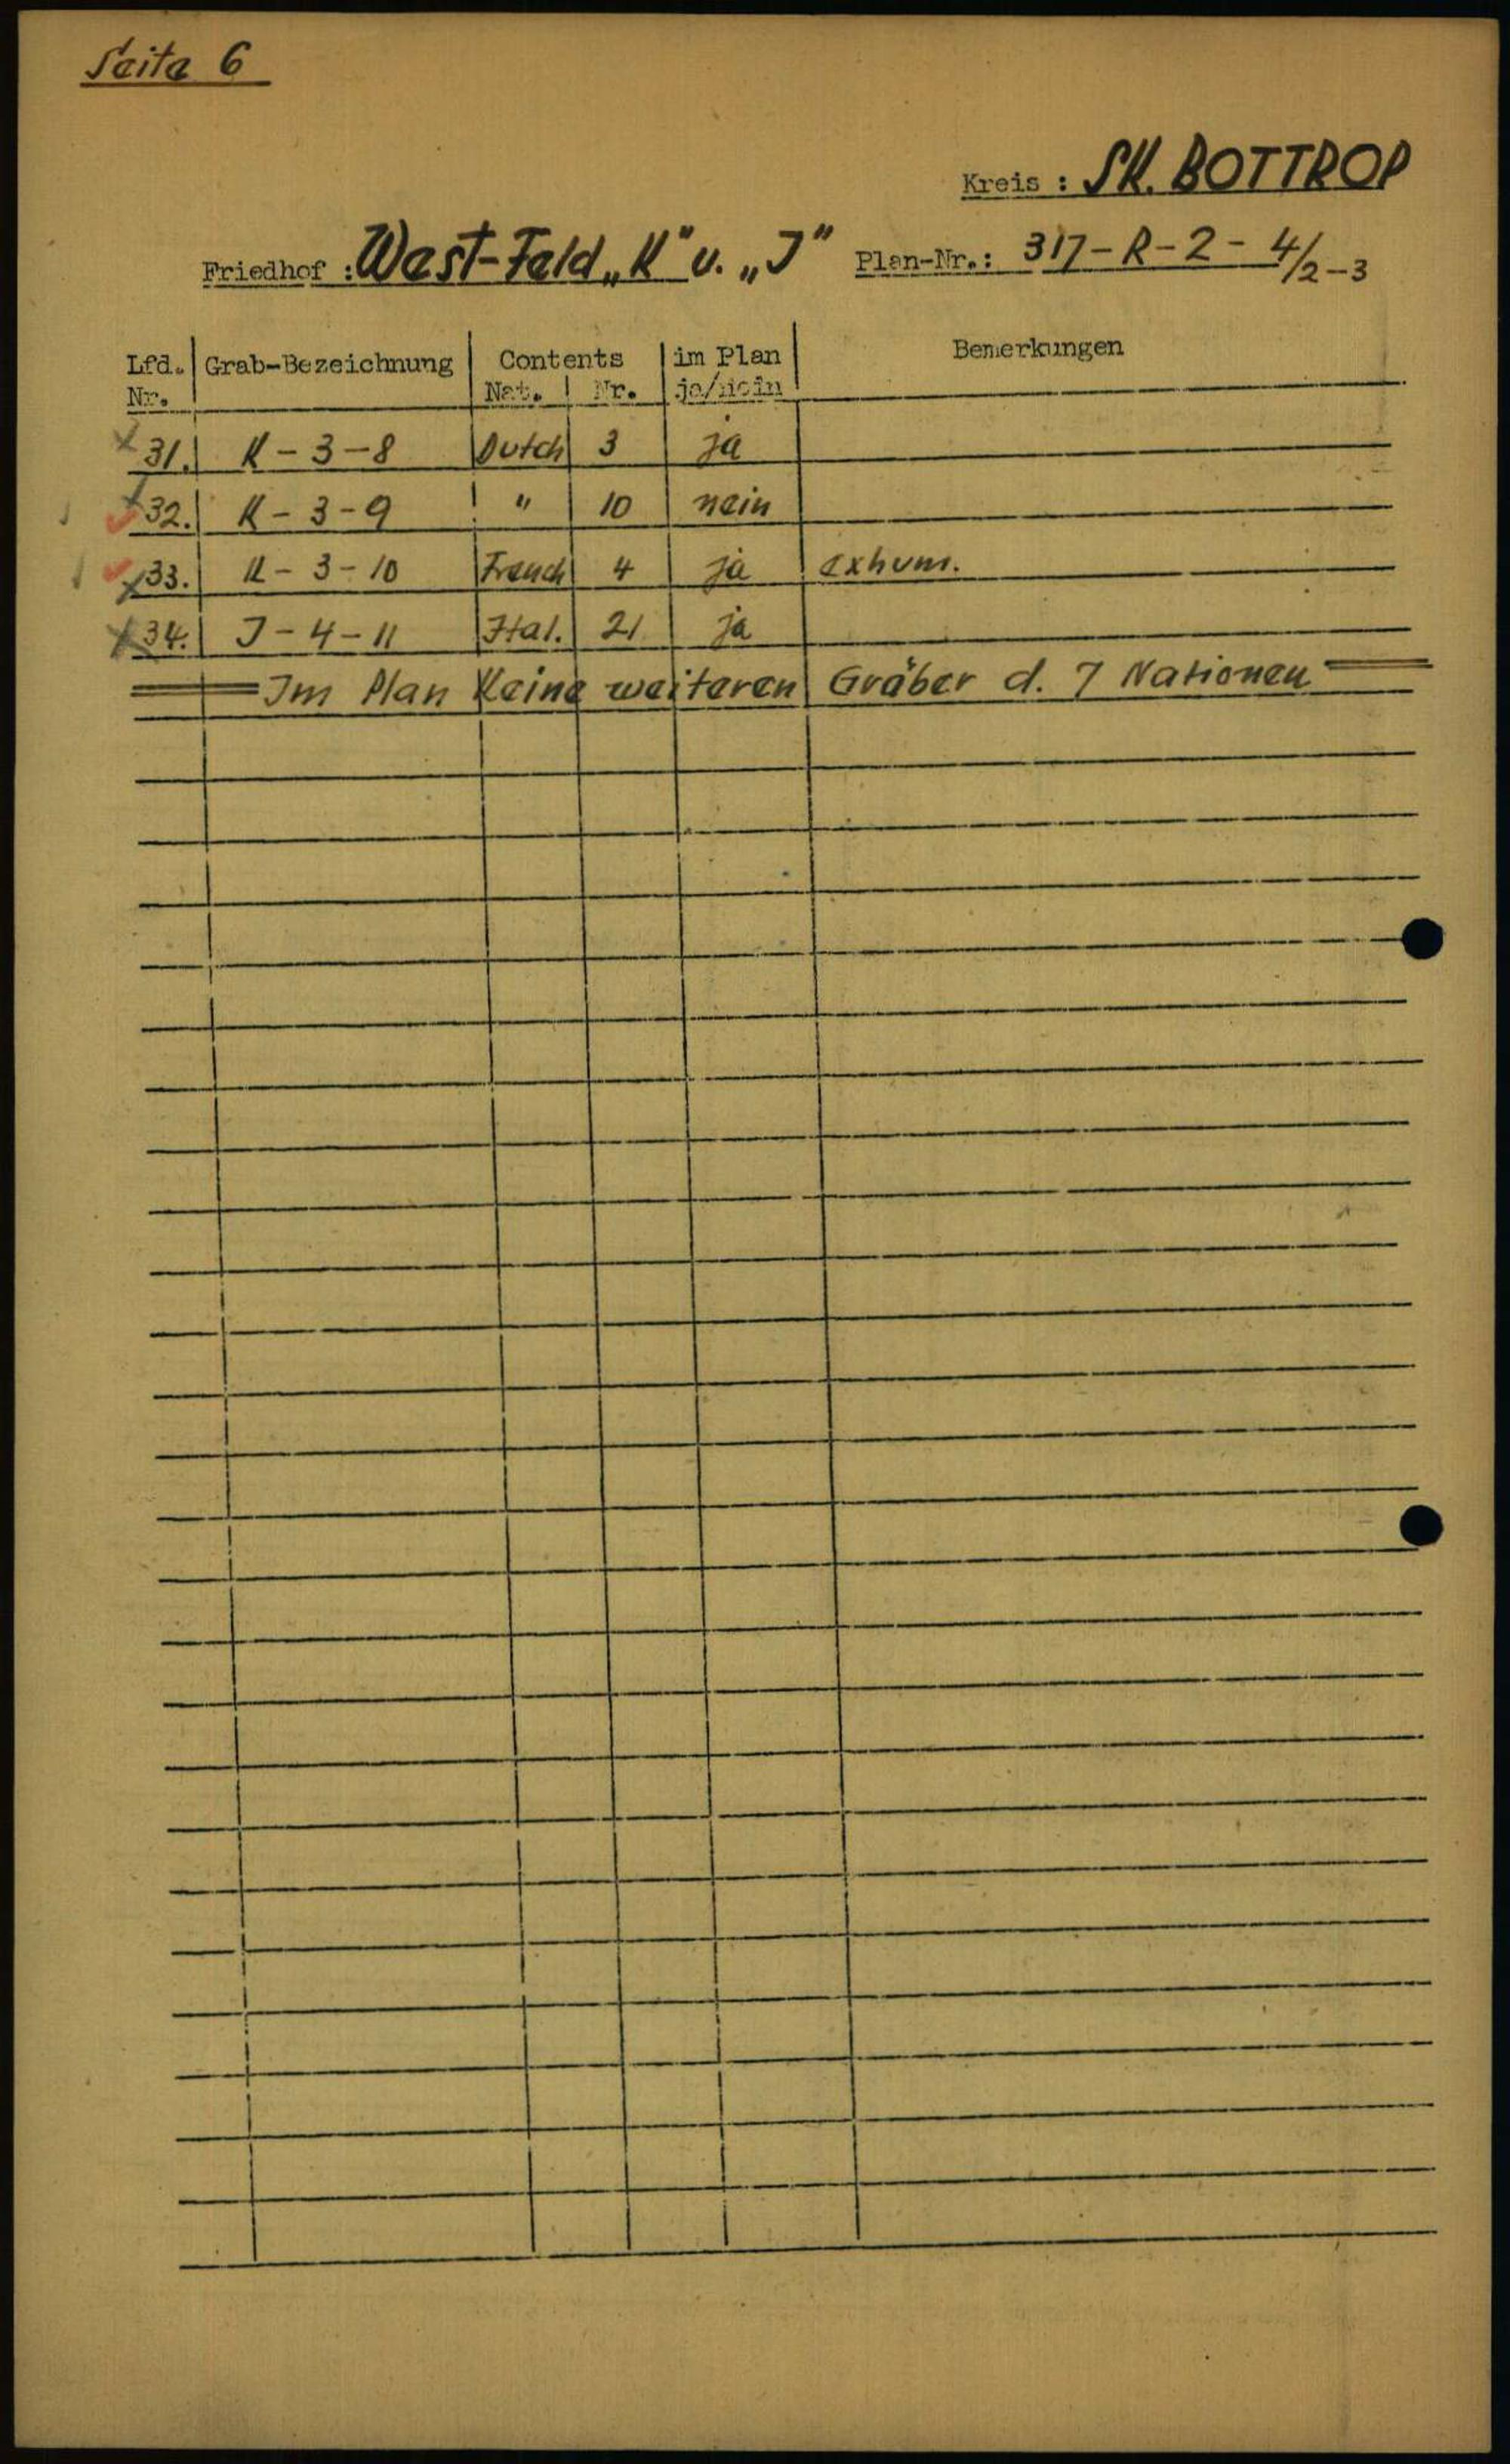 Seite 6
Kreis : SK. BOTTROP
Friedhof : West-Feld „K" u. „J" Plan-Nr.: 317-R-2-4/2-3
Lfd. Nr. Grab-Bezeichnung Contents Nat. Nr. im Plan ja/nein Bemerkungen
31. K-3-8 Dutch 3 ja
32. K-3-9 " 10 nein
33. K-3-10 French 4 ja exhum.
34. J-4-11 Ital. 21 ja
Im Plan Keine weiteren Gräber d. 7 Nationen